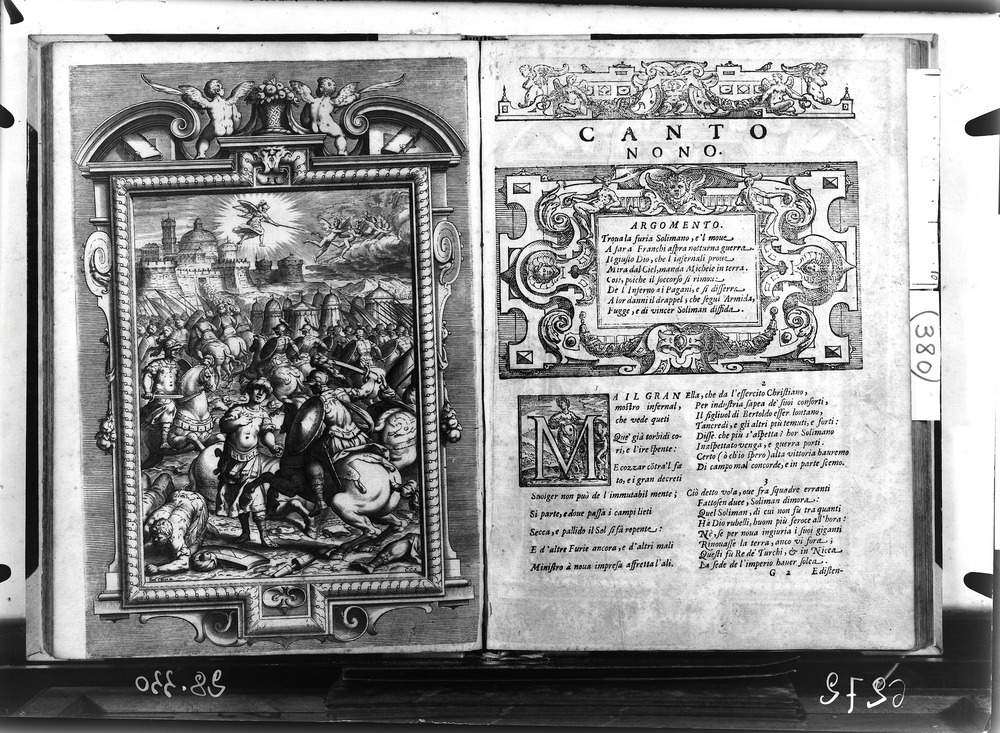 CANTO
NONO.
ARGOMENTO.
Troua la furia Solimano, e'l moue
A far a Franchi aspra notturna guerra.
Il giusto Dio, che l'infernali proue
Mira dal Ciel, manda Michele in terra.
Così, poiche il soccorso si rimoue
De l'Inferno a i Pagani, e si disserra
A lor danni il drappel, che seguì Armida,
Fugge, e di vincer Soliman diffida.
1
MA IL GRAN
mostro infernal,
che vede queti
Que' già torbidi co-
ri, e l'ire spente:
E cozzar cōtra'l fa
to, e i gran decreti
Suolger non può de l'immutabil mente;
Si parte, e doue passa i campi lieti
Secca, e pallido il Sol si fà repente:
E d'altre Furie ancora, e d'altri mali
Ministro à noua impresa affretta l'ali.
2
Ella, che da l'essercito Christiano,
Per industria sapea de' suoi consorti,
Il figliuol di Bertoldo esser lontano,
Tancredi, e gli altri più temuti, e forti:
Disse. che più s'aspetta? hor Solimano
Inaspettato venga, e guerra porti.
Certo (ò ch'io spero) alta vittoria hauremo
Di campo mal concorde, e in parte scemo.
3
Ciò detto vola, oue fra squadre erranti
Fattosen duce, Soliman dimora:
Quel Soliman, di cui non fù tra quanti
Hà Dio rubelli, huom più feroce all'hora:
Nè, se per noua ingiuria i suoi giganti
Rinouasse la terra, anco vi fora;
Questi fu Re de' Turchi, & in Nicea
La sede de l'imperio hauer solea.
G 2
E disten-
101
(380)
28.330
6272